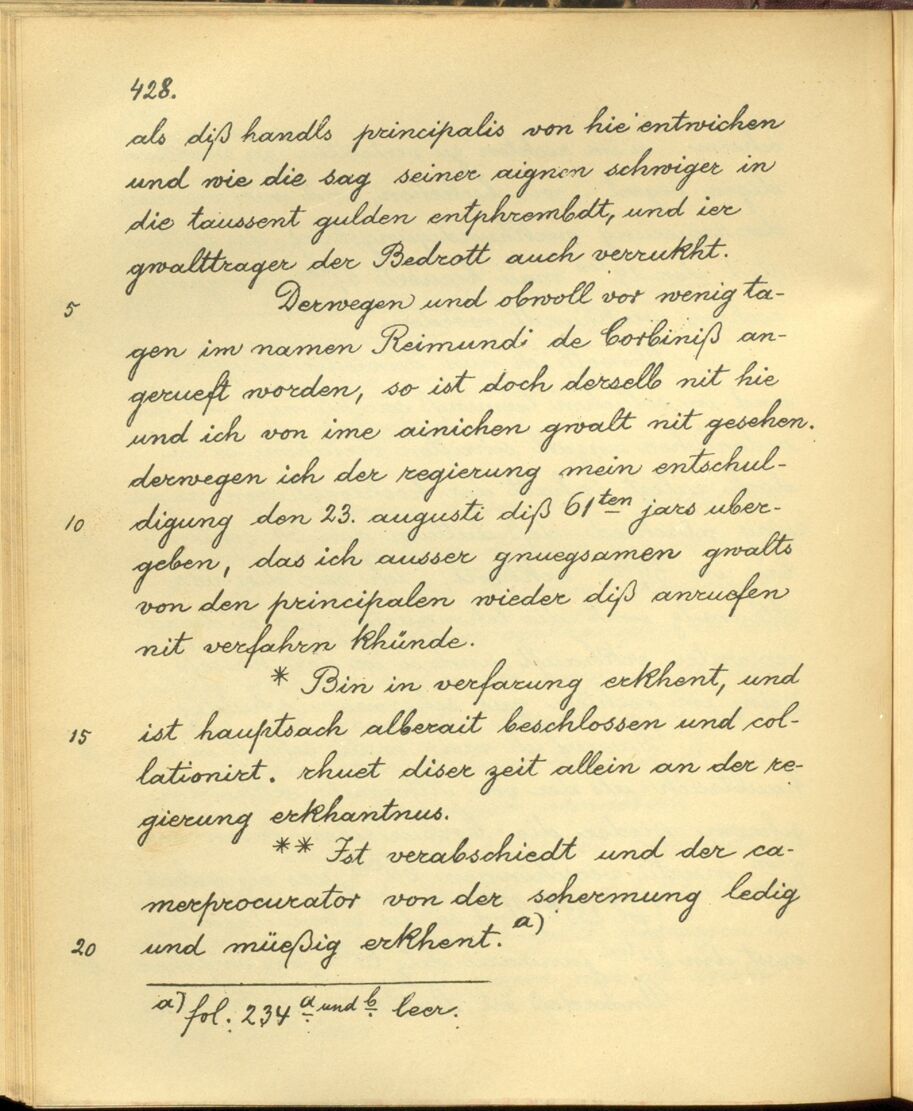 428.
als diß handls principalis von hie entwichen
und wie die sag seiner aignen schwiger in
die taussent gulden entphrembdt, und ier
gwalttrager der Bedrott auch verrukht.
5 Derwegen und obwoll vor wenig ta-
gen im namen Reimundi de Corbiniß an-
gerueft worden, so ist doch derselb nit hie
und ich von ime ainichen gwalt nit gesehen.
derwegen ich der regierung mein entschul-
10 digung den 23. augusti diß 61ten jars uber-
geben, das ich ausser gnuegsamen gwalts
von den principalen wieder diß anruefen
nit verfahrn khünde.
* Bin in verfarung erkhent, und
15 ist hauptsach alberait beschlossen und col-
lationirt. rhuet diser zeit allein an der re-
gierung erkhantnus.
** Ist verabschiedt und der ca-
merprocurator von der schermung ledig
20 und müeßig erkhent. a)
a) fol. 234 a und b leer.